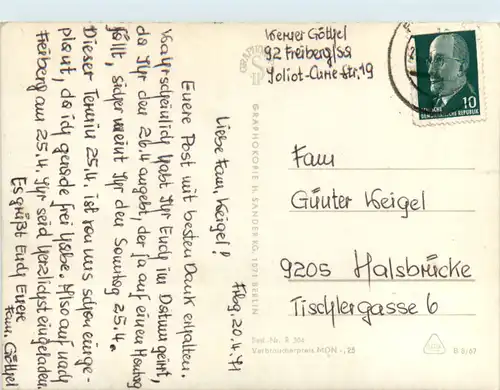 Frbg. 20.4.71
Liebe Fam. Weigel!
Euere Post mit besten Dank erhalten.
Wahrscheinlich habt Ihr Euch im Datum geirrt,
da Ihr den 26.4 angebt, der ja auf einen Montag
fällt, sicher meint Ihr den Sonntag 25.4.
Dieser Termin 25.4. ist von uns schon einge-
plant, da ich gerade frei habe. Also auf nach
Freiberg am 25.4. Ihr seid herzlichst eingeladen
Es grüßt Euch Euere
Fam. Göthel
Werner Göthel
92 Freiberg/Sa
Joliot-Curie Str. 19
GRAPHOKOPIE H. SANDER KG, 1071 BERLIN
10
DEUTSCHE
DEMOKRATISCHE REPUBLIK
Fam
Günter Weigel
9205 Halsbrücke
Tischlergasse 6
Best.-Nr. R 304
Verbraucherpreis MDN -,25